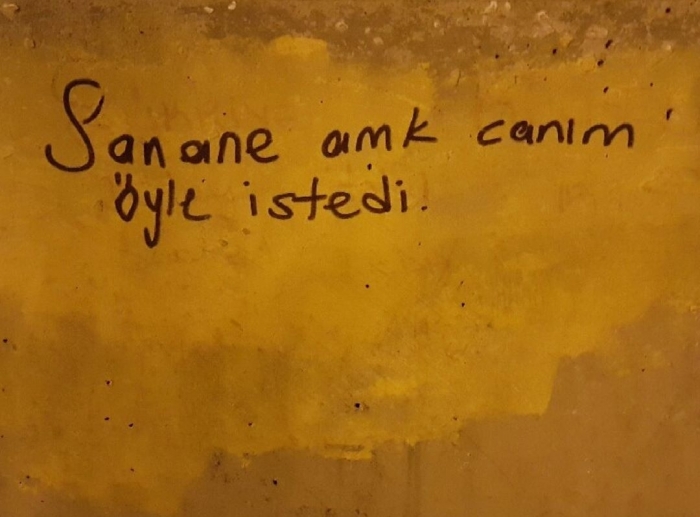 Sanane amk canım
öyle istedi.